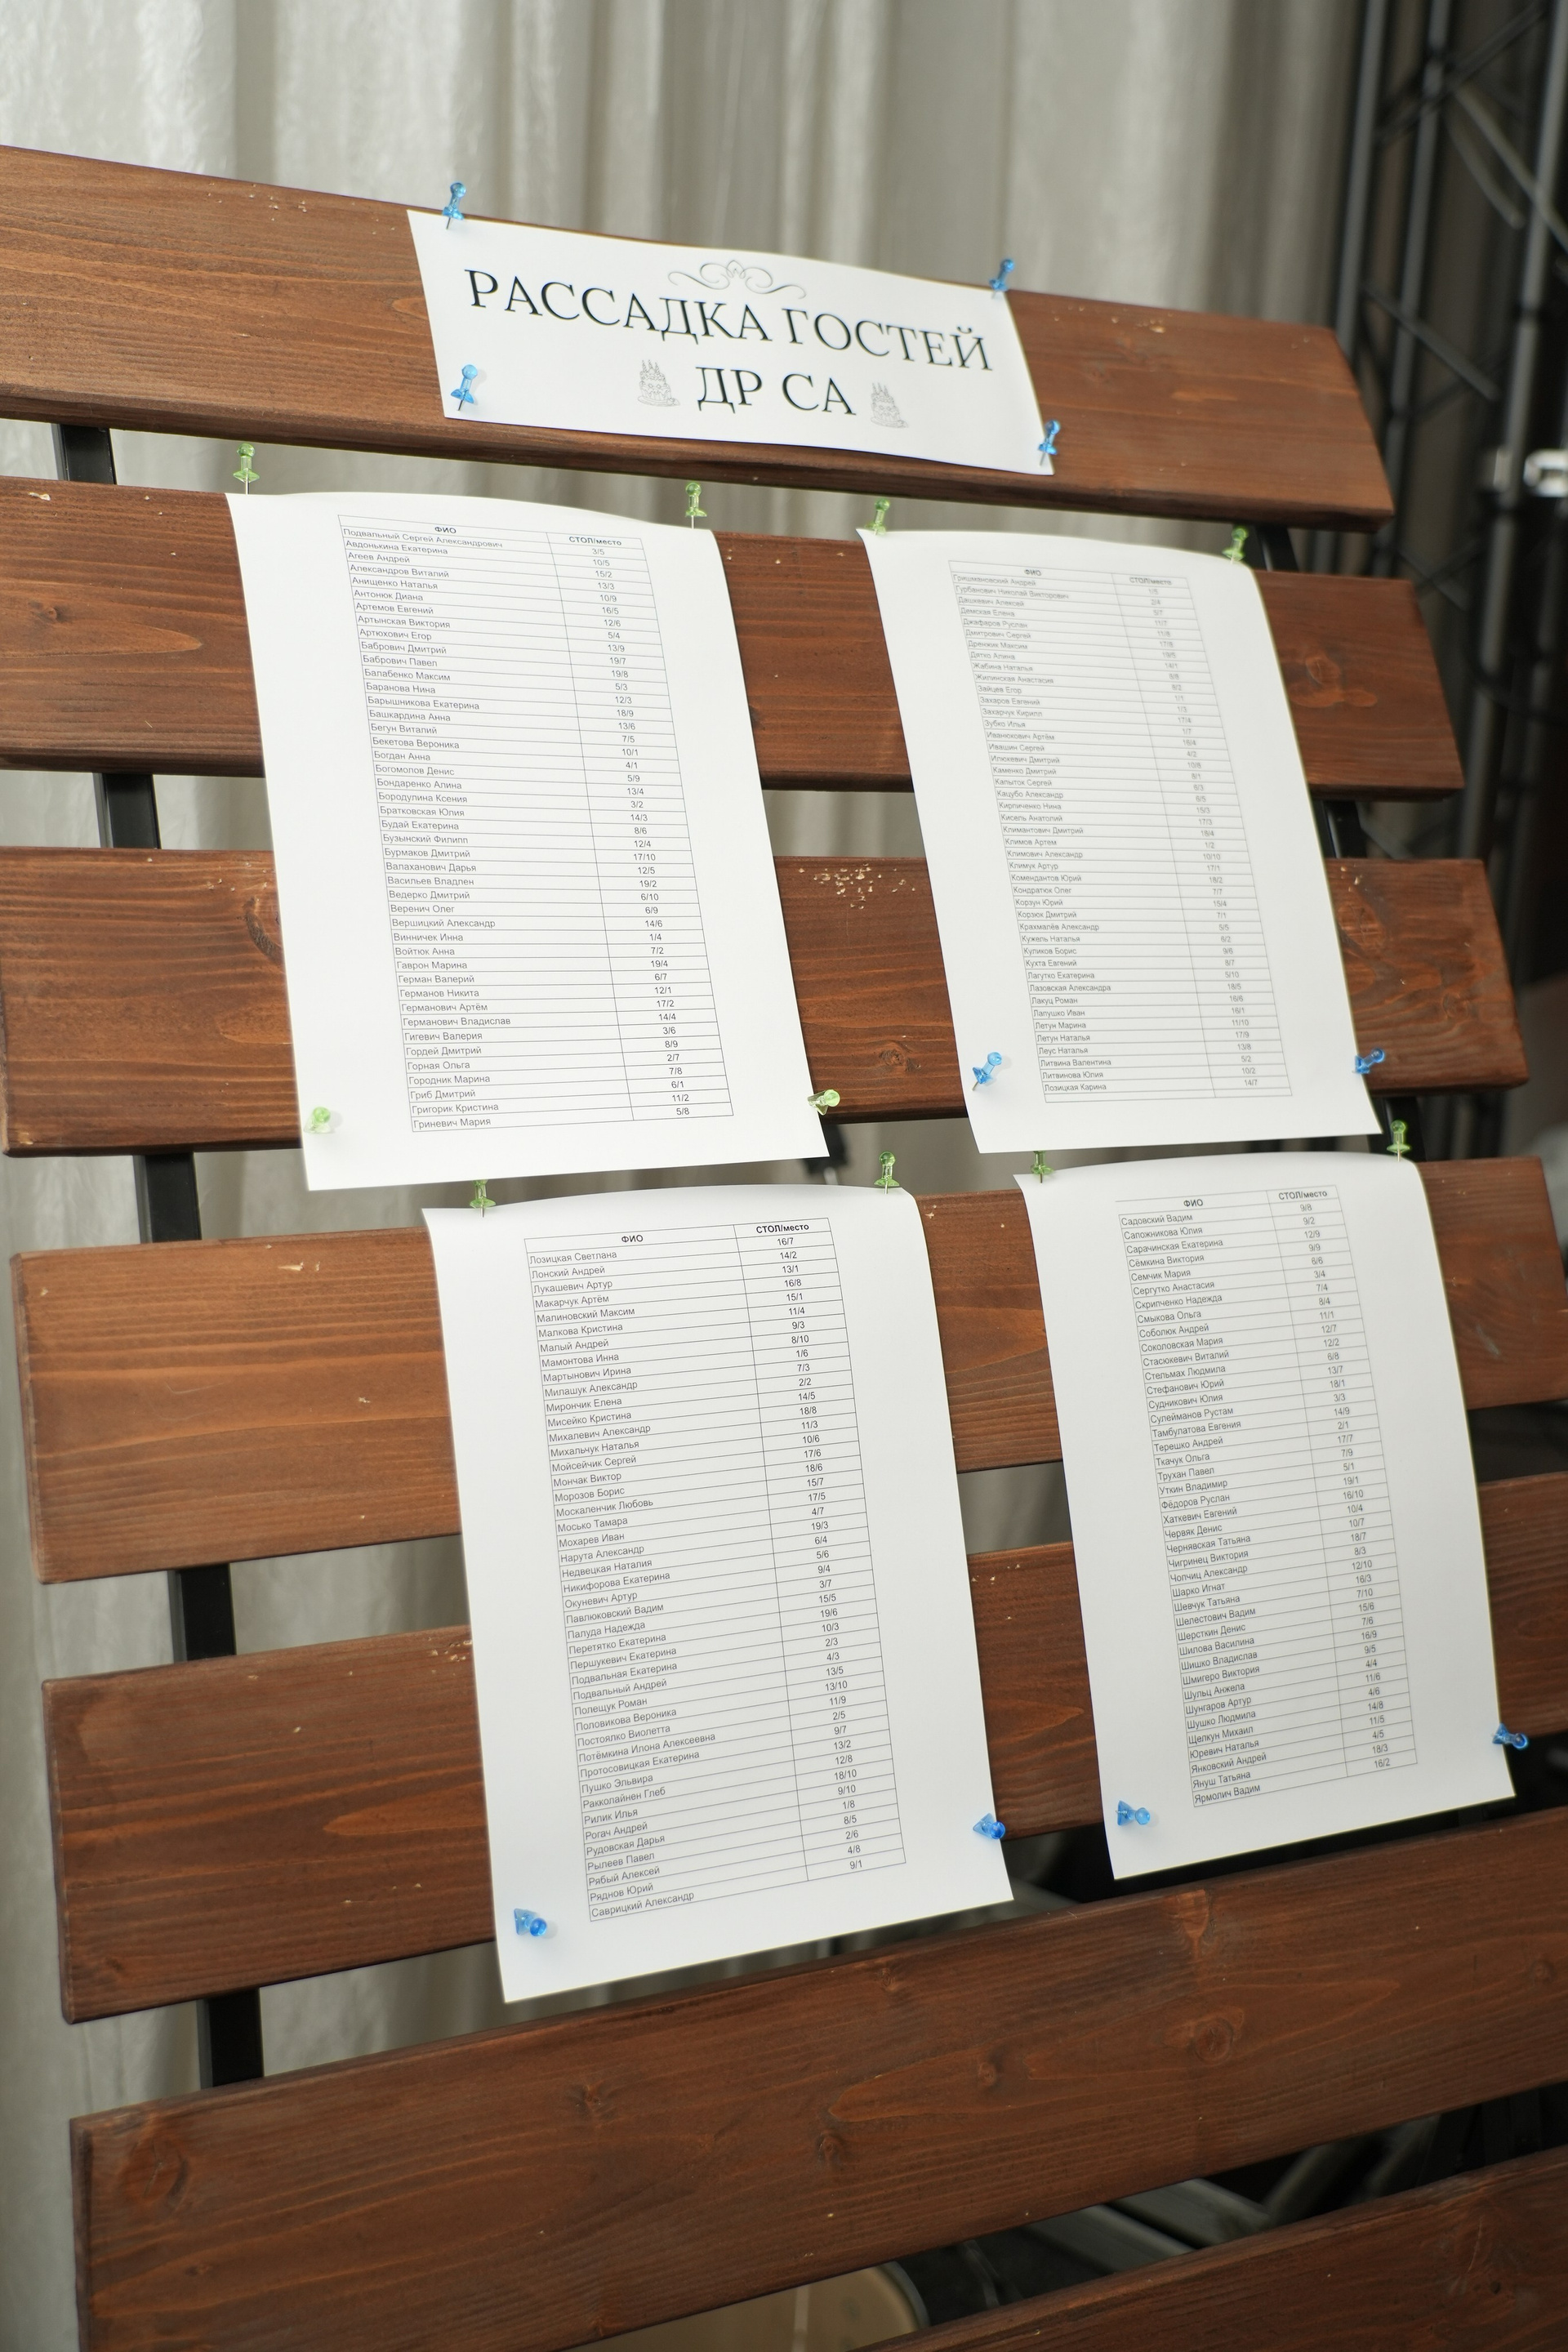 РАССАДКА ГОСТЕЙ
ДР СА
ФИО СТОЛ/место
Подвальный Сергей Александрович 3/5
Авдонькина Екатерина 10/5
Агеев Андрей 15/2
Александров Виталий 13/3
Анищенко Наталья 10/9
Антонюк Диана 16/5
Артемов Евгений 12/6
Артынская Виктория 5/4
Артюхович Егор 13/9
Бабрович Дмитрий 19/7
Бабрович Павел 19/8
Балабенко Максим 5/3
Баранова Нина 12/3
Барышникова Екатерина 18/9
Башкардина Анна 13/6
Бегун Виталий 7/5
Бекетова Вероника 10/1
Богдан Анна 4/1
Богомолов Денис 5/9
Бондаренко Алина 13/4
Бородулина Ксения 3/2
Братковская Юлия 14/3
Будай Екатерина 8/6
Бузынский Филипп 12/4
Бурмаков Дмитрий 17/10
Валаханович Дарья 12/5
Васильев Владлен 19/2
Ведерко Дмитрий 6/10
Веренич Олег 6/9
Вершицкий Александр 14/6
Винничек Инна 1/4
Войтюк Анна 7/2
Гаврон Марина 19/4
Герман Валерий 6/7
Германов Никита 12/1
Германович Артём 17/2
Германович Владислав 14/4
Гигевич Валерия 3/6
Гордей Дмитрий 8/9
Горная Ольга 2/7
Городник Марина 7/8
Гриб Дмитрий 6/1
Григорик Кристина 11/2
Гриневич Мария 5/8
ФИО СТОЛ/место
Андрей
Гурбанович Николай Викторович 2/4
Дашкевич Алексей
Демская Елена 11/7
Джафаров Руслан 11/8
Дмитрович Сергей 17/8
Максим 19/5
Дятко Алина 14/1
Жабина Наталья
Жилинская Анастасия
Зайцев Егор 1/1
Захаров Евгений 1/3
Захарчук Кирилл 17/4
Зубко Илья 1/7
Иванюкович Артём 16/4
Ивашин Сергей 4/2
Илюкевич Дмитрий 10/8
Каменко Дмитрий
Капыток Сергей 6/3
Кацубо Александр
Кирпиченко Нина 15/3
Кисель Анатолий 17/3
Климантович Дмитрий
Климов Артем 1/2
Климович Александр 10/10
Климук Артур 17/1
Комендантов Юрий 18/2
Кондратюк Олег 7/7
Корзун Юрий 15/4
Корзюк Дмитрий 7/1
Крахмалёв Александр 5/5
Кужель Наталья 6/2
Куликов Борис 9/6
Кухта Евгений 8/7
Лагутко Екатерина 5/10
Лазовская Александра 18/5
Лакуц Роман 16/6
Лапушко Иван 16/1
Летун Марина 11/10
Летун Наталья 17/9
Леус Наталья 13/8
Литвина Валентина 5/2
Литвинова Юлия 10/2
Лозицкая Карина 14/7
ФИО СТОЛ/место
Лозицкая Светлана 16/7
Лонский Андрей 14/2
Лукашевич Артур 13/1
Макарчук Артём 16/8
Малиновский Максим 15/1
Малкова Кристина 11/4
Малый Андрей 9/3
Мамонтова Инна 8/10
Мартынович Ирина 1/6
Милашук Александр 7/3
Мирончик Елена 2/2
Мисейко Кристина 14/5
Михалевич Александр 18/8
Михальчук Наталья 11/3
Мойсейчик Сергей 10/6
Мончак Виктор 17/6
Морозов Борис 18/6
Москаленчик Любовь 15/7
Мосько Тамара 17/5
Мохарев Иван 4/7
Нарута Александр 19/3
Недвецкая Наталия 6/4
Никифорова Екатерина 5/6
Окуневич Артур 9/4
Павлюковский Вадим 3/7
Палуда Надежда 15/5
Перетятко Екатерина 19/6
Першукевич Екатерина 10/3
Подвальная Екатерина 2/3
Подвальный Андрей 4/3
Полещук Роман 13/5
Половикова Вероника 13/10
Постоялко Виолетта 11/9
Потёмкина Илона Алексеевна 2/5
Протосовицкая Екатерина 9/7
Пушко Эльвира 13/2
Ракколайнен Глеб 12/8
Рилик Илья 18/10
Рогач Андрей 9/10
Рудовская Дарья 1/8
Рылеев Павел 8/5
Рябый Алексей 2/6
Ряднов Юрий 4/8
Саврицкий Александр 9/1
ФИО СТОЛ/место
Садовский Вадим 9/8
Сапожникова Юлия 9/2
Сарачинская Екатерина 12/9
Сёмкина Виктория 9/9
Семчик Мария 6/6
Сергутко Анастасия 3/4
Скрипченко Надежда 7/4
Смыкова Ольга 8/4
Соболюк Андрей 11/1
Соколовская Мария 12/7
Стасюкевич Виталий 12/2
Стельмах Людмила 6/8
Стефанович Юрий 13/7
Судникович Юлия 18/1
Сулейманов Рустам 3/3
Тамбулатова Евгения 14/9
Терешко Андрей 2/1
Ткачук Ольга 17/7
Трухан Павел 7/9
Уткин Владимир 5/1
Фёдоров Руслан 19/1
Хаткевич Евгений 16/10
Червяк Денис 10/4
Чернявская Татьяна 10/7
Чигринец Виктория 18/7
Чопчиц Александр 8/3
Шарко Игнат 12/10
Шевчук Татьяна 16/3
Шелестович Вадим 7/10
Шерсткин Денис 15/6
Шилова Василина 7/6
Шишко Владислав 16/9
Шмигеро Виктория 9/5
Шульц Анжела 4/4
Шунгаров Артур 11/6
Шушко Людмила 4/6
Щелкун Михаил 14/8
Юревич Наталья 11/5
Янковский Андрей 4/5
Януш Татьяна 18/3
Ярмолич Вадим 16/2